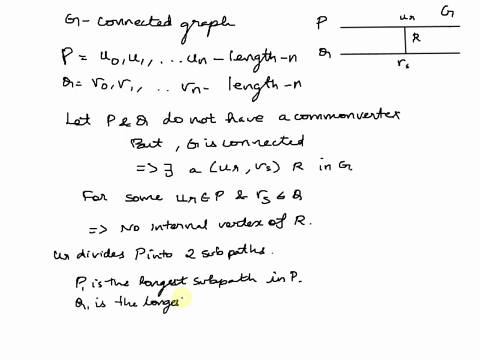 G - connected graph
P = u0, u1, ... un - length-n
Q = v0, v1, .. vn - length-n
P ur G
R
Q vs
Let P & Q do not have a common vertex
But, G is connected
=> ∃ a (ur, vs) R in G
For some ur ∈ P & vs ∈ Q
=> No internal vertex of R.
ur divides P into 2 subpaths.
P1 is the longest subpath in P.
Q1 is the longe